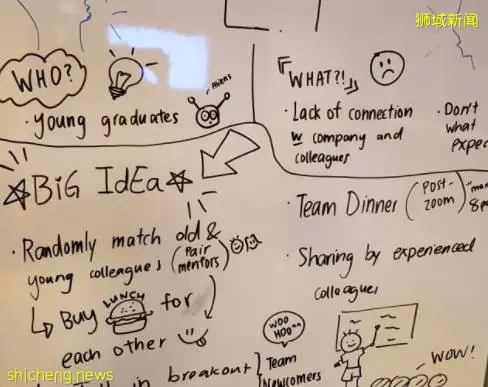 狮城新闻
WHO?
· young graduates
Aliens
『WHAT?!』
· Lack of connection
w company and
colleagues
· Don't
what
expec
☆BiG IdEa☆
· Randomly match old &
young colleagues (Pair mentors)
↳ Buy LUNCH for
each other
in breakout
Team
Newcomers
· Team Dinner (POST-ZOOM)
8p
· Sharing by experienced
colleagues
WOO
HOO
WOW!
shicheng.news